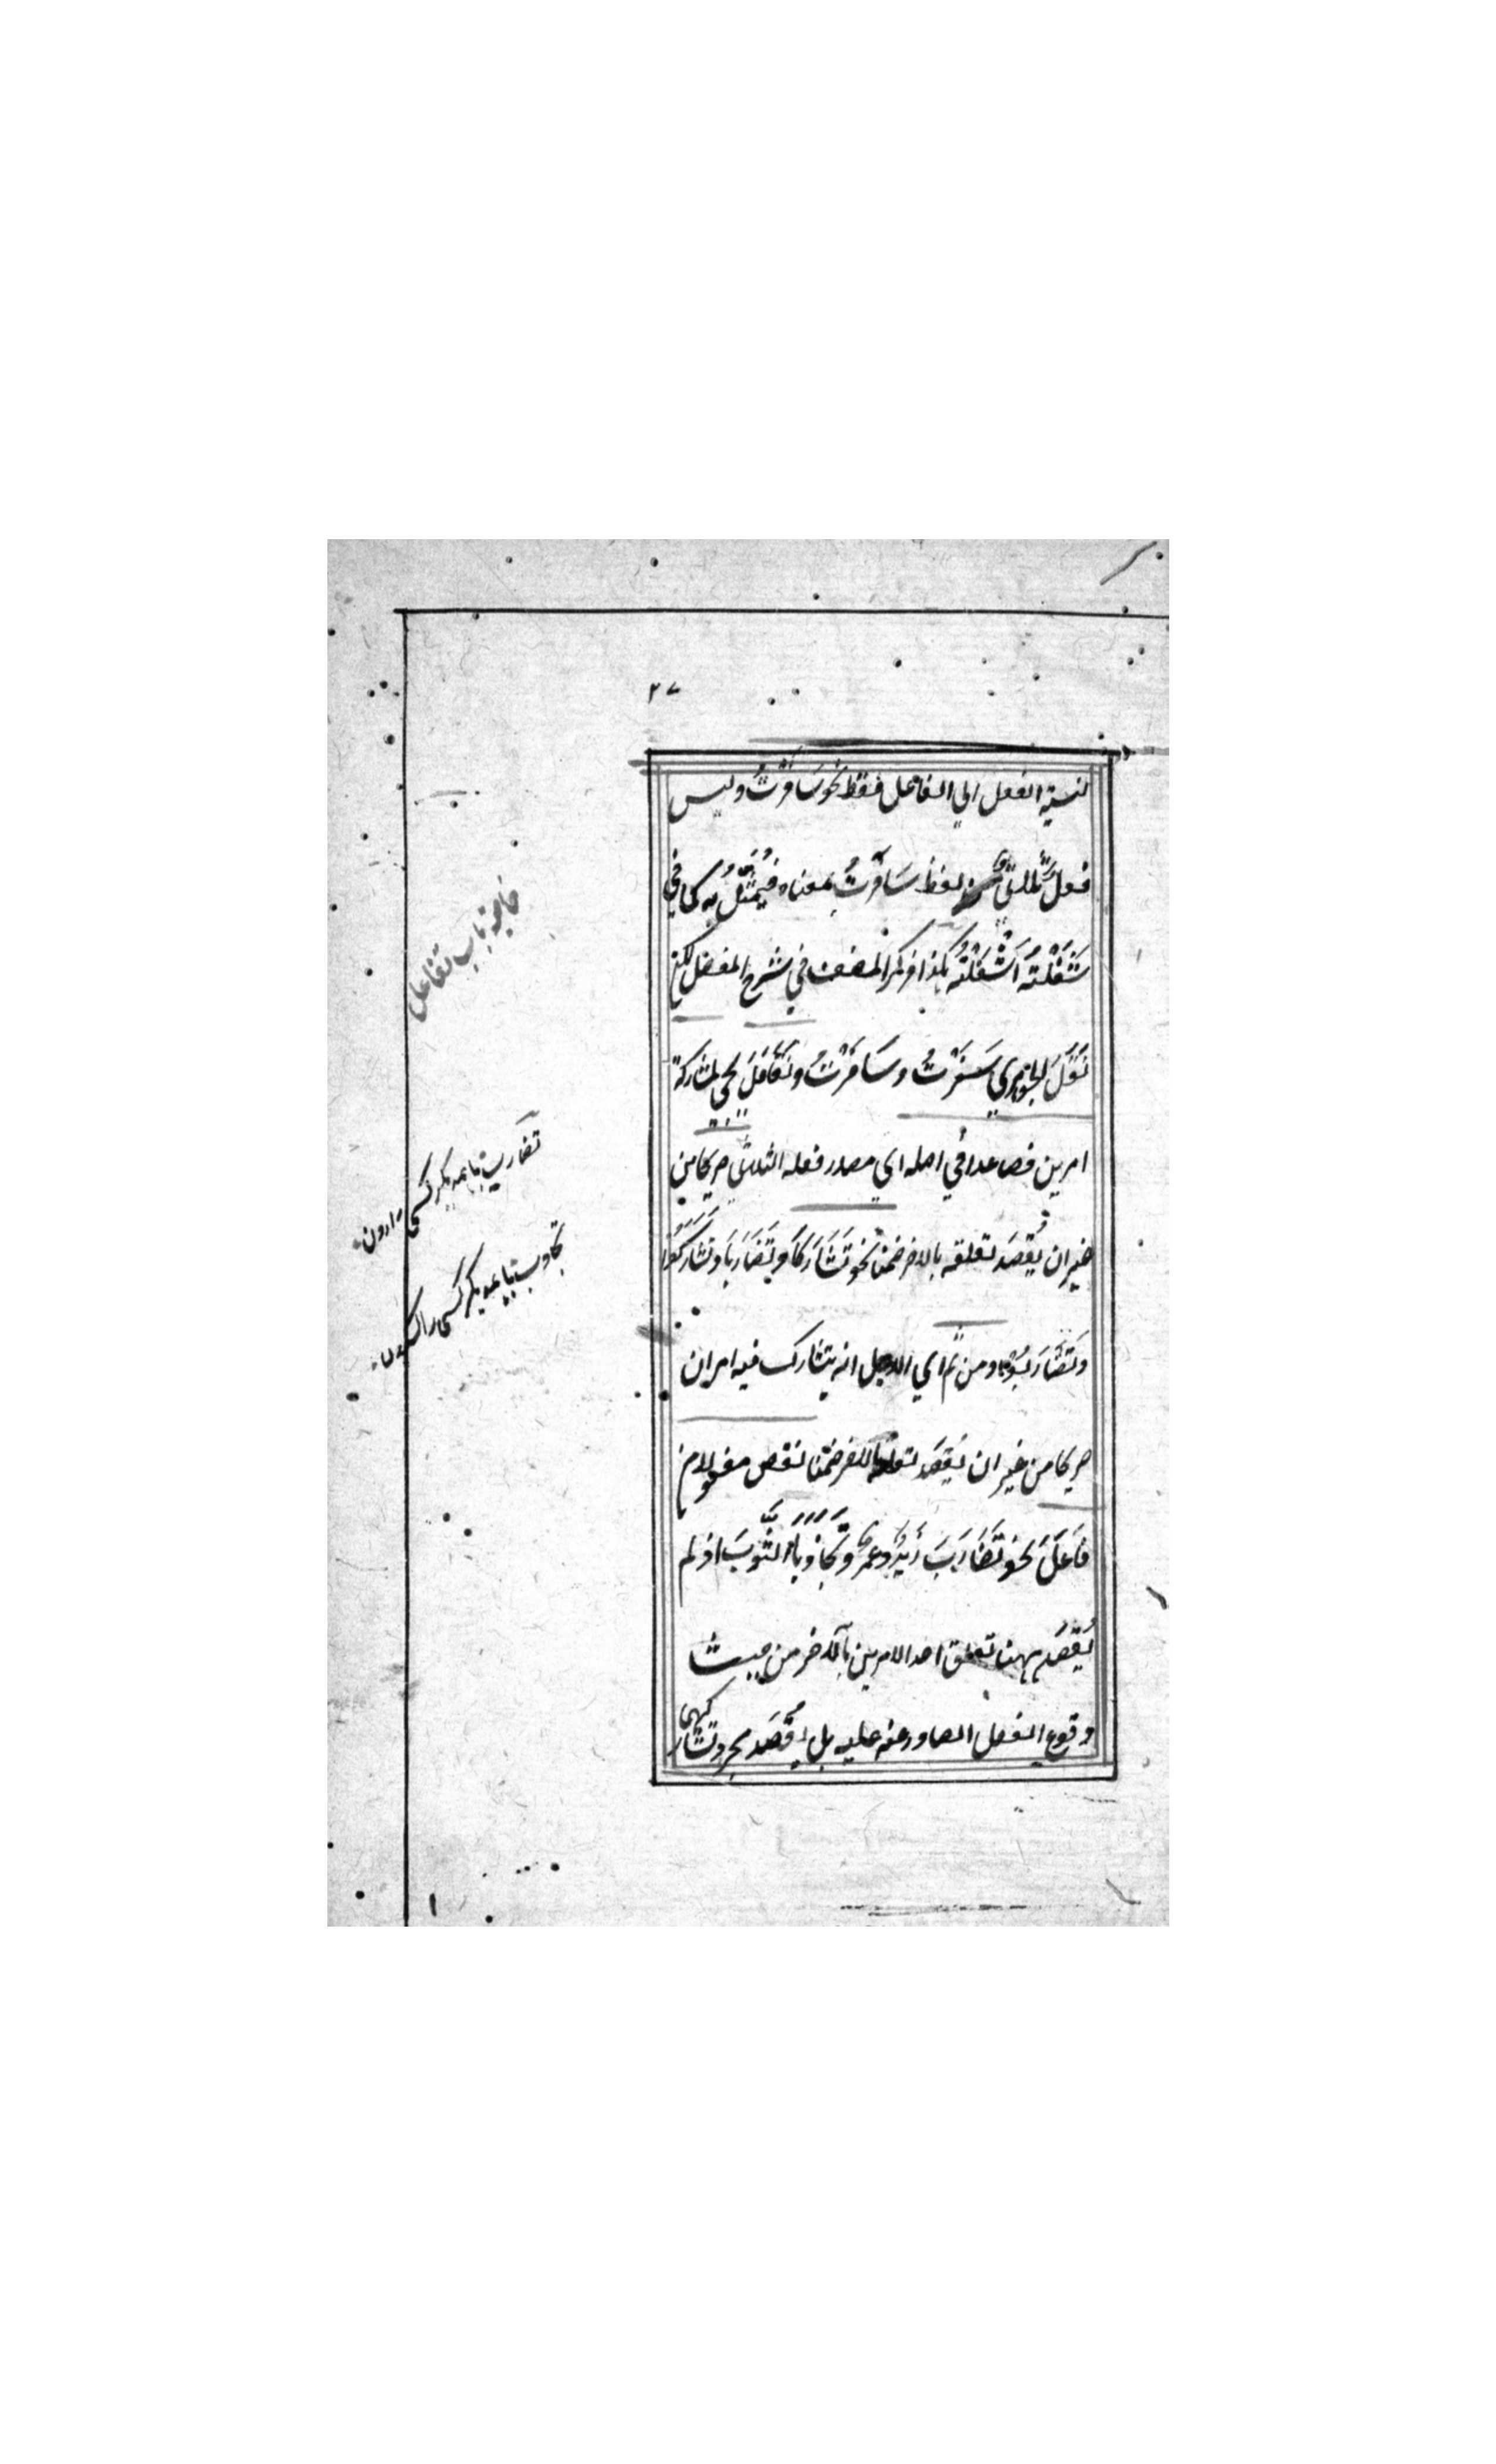 ٢٧
لنسبة الفعل الي الفاعل فقط نحو سَافَرْتُ وليس
فعلٌ ثلاثيٌّ من لفظ سَافَرْتُ بمعناه فيُمَثَّلُ به كما في
شَغَلْتُهُ اَشْغَلْتُهُ كذا ذكر المصنف في شرح المفصل لكن
نَقَلَ الجَوْهَرِي سَفَرْتُ وسَافَرْتُ وتَفَاعَلَ يجي لمشاركة
امرين فصاعدا في اصله اي مصدر فعله الثلاثي صريحا من
غير ان يُقصَد تعلقه بالاخر ضمنا نحو تَشَارَكَا وتَضَارَبَا وتَشَارَكُوا
وتَضَارَبُوا ومن ثم اي لاجل انه يتشارك فيه امران
صريحا من غير ان يُقصَد تعلقه بالاخر ضمنا نقص مفعولا من
فَاعَلَ نحو تَضَارَبَ زَيْدٌ وعمرٌو وتَجَاذَبَا الثَّوبَ اذ لم
يُقْصَد ههنا تعلق احد الامرين بالاخر من حيث
وقوع الفعل الصادر عنه عليه بل يُقصَد مجرد تشاركهما
خاصية باب تفاعل
تضارب با همديگر كسى را زدن
تجاذب با همديگر كسى را كشيدن